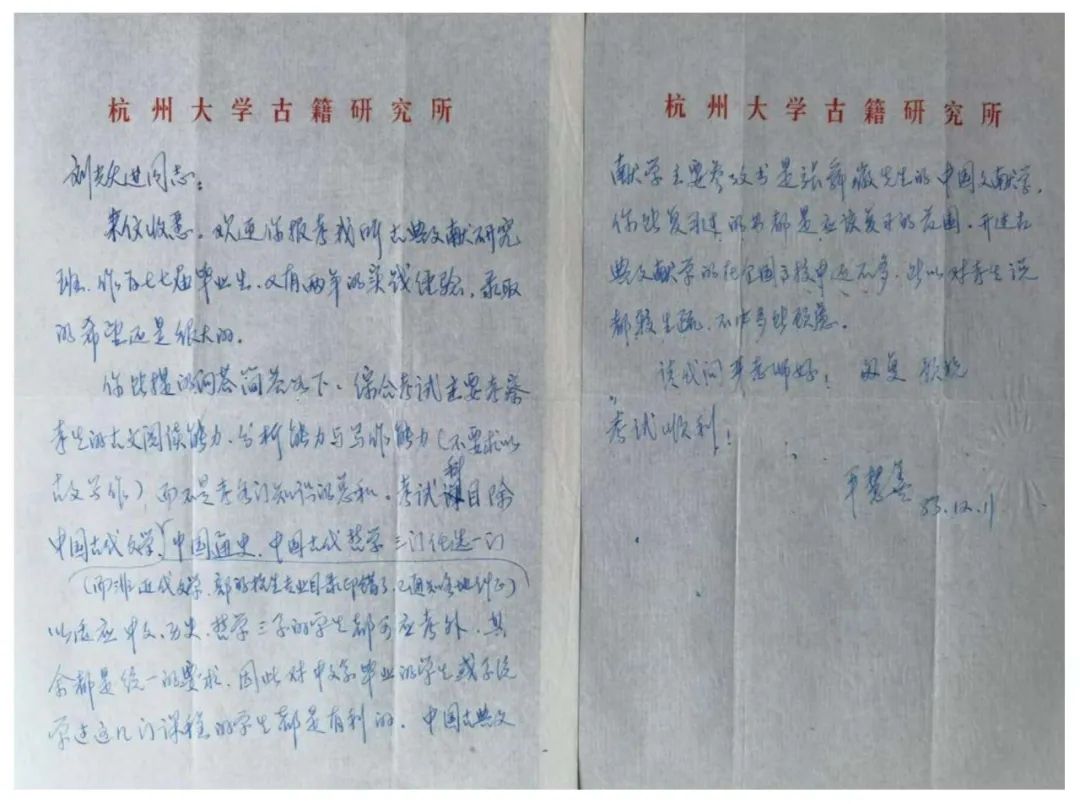 杭州大学古籍研究所
刘跃进同志：
来仪收悉。欢迎你报考我所古典文献研究
班。你为七七届毕业生，又有两年的实践经验，录取
的希望还是很大的。
你所提的问答简答如下。综合考试主要考察
考生的古文阅读能力、分析能力与写作能力（不要求以
古文写作）而不是考各门知识的总和。考试科目除
中国古代文学、中国通史、中国古代哲学三门任选一门
（而非近代文学，部的招生专业目录印错了，已通知各地纠正）
以适应中文、历史、哲学三系的学生都可应考外，其
余都是统一的要求，因此对中文系毕业的学生或系统
学过这几门课程的学生都是有利的。中国古典文
杭州大学古籍研究所
献学主要参考书是张舜徽先生的中国文献学。
你所复习过的书都是应该复习的范围。开过古
典文献学的在全国高校中还不多，所以对考生说
都较生疏，不必多所顾虑。
请代问 老师好！ 匆复 预祝
考试顺利！
83.12.11